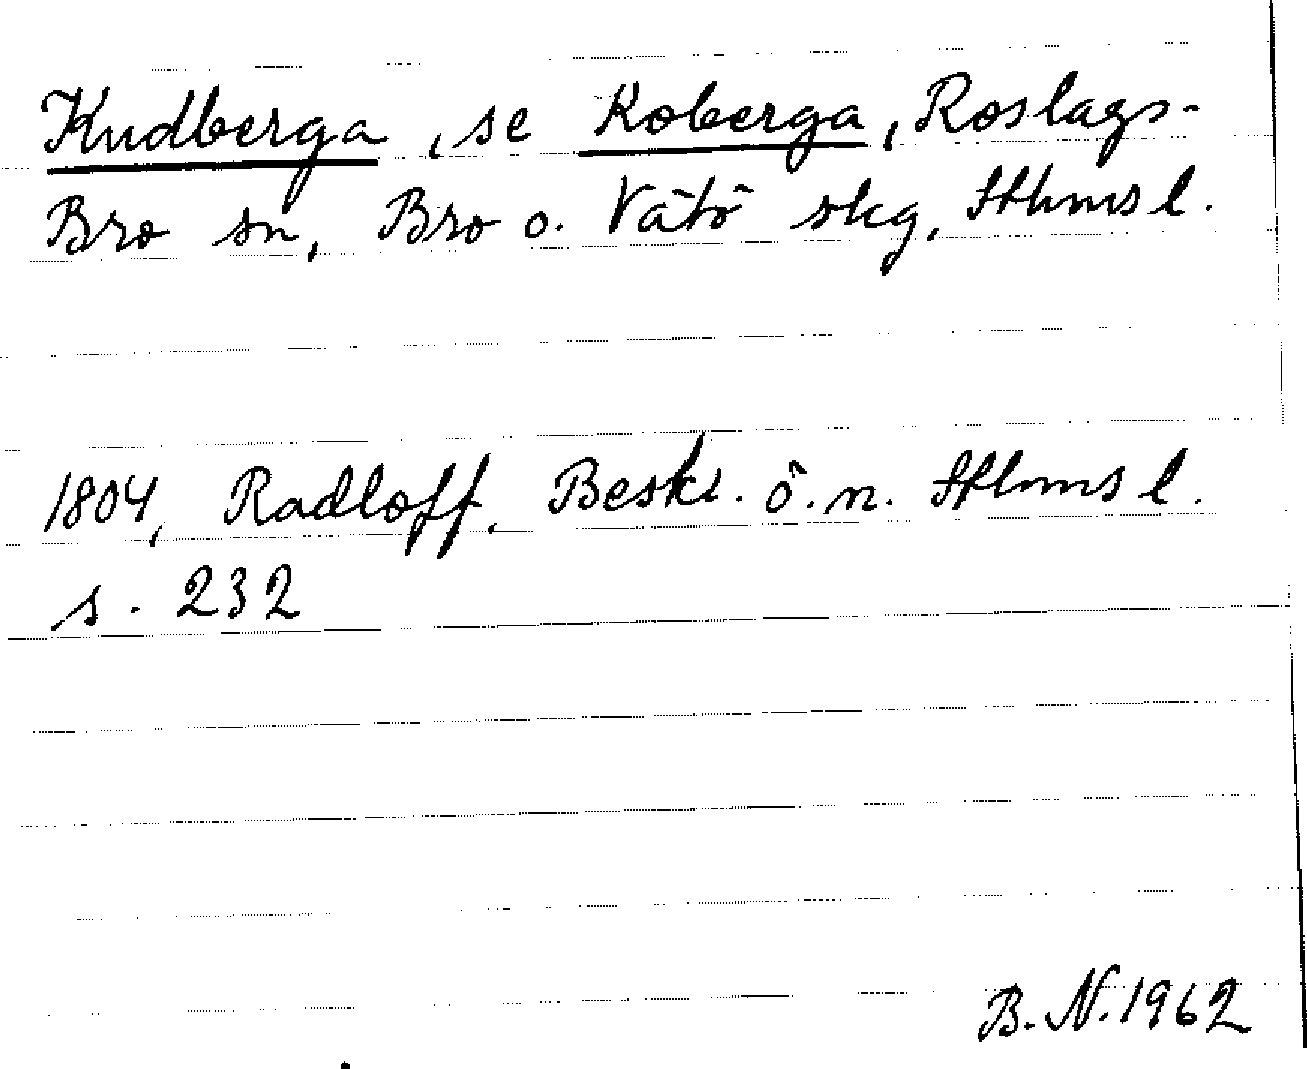 Kudberga, se Koberga, Roslags-
Bro sn, Bro o. Vätö skg, Sthms l.
1804, Radloff. Beskr. ö. n. Sthms l.
s. 232
B. N. 1962